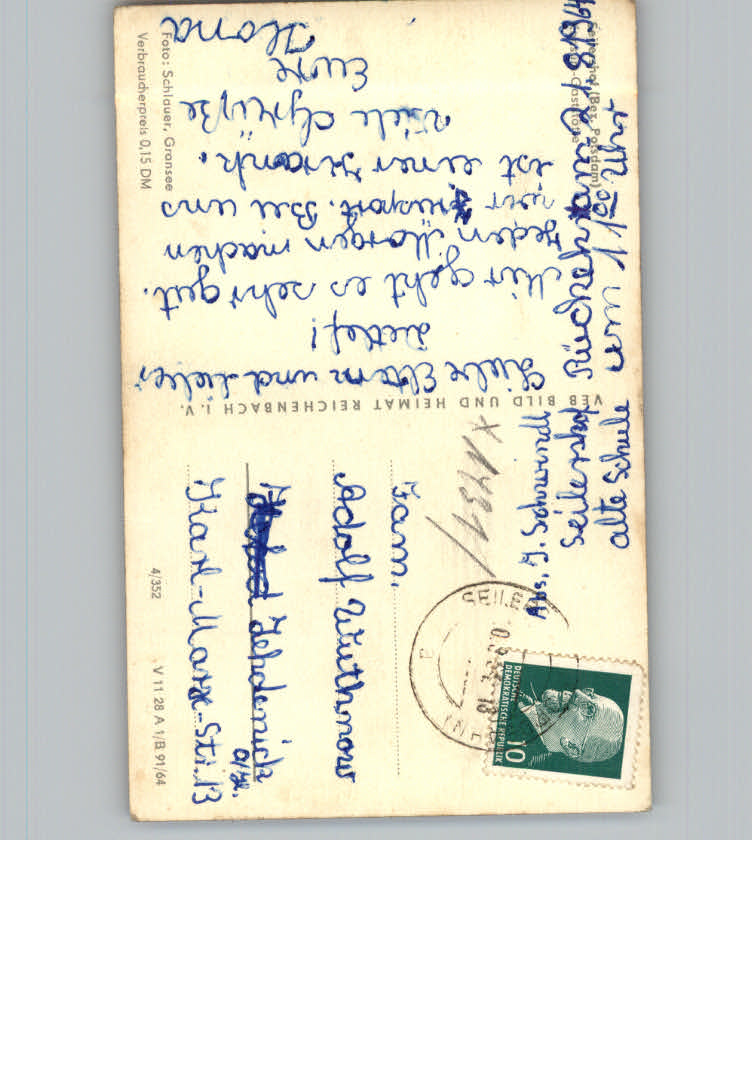 Seilershof (Bez. Potsdam)
Konsum-Gaststätte
Liebe Eltern und lieber
Detlef!
Mir geht es sehr gut.
Jeden Morgen machen
wir Frühsport. Bei uns
ist einer krank.
Viele Grüße
Eure
Ilona
Foto: Schlauer, Gransee
Verbraucherpreis 0,15 DM
Rückfahrt am 27.8.
um 1/00 Uhr
VEB BILD UND HEIMAT REICHENBACH i. V.
Abs. I. Schwandt
Seilershof
alte Schule
X 1431
Fam.
Adolf Wuthnow
Zehdenick
a/H.
Karl-Marx-Str. 13
4/352
V 11 28 A 1/B 91/64
DEUTSCHE
DEMOKRATISCHE REPUBLIK
10